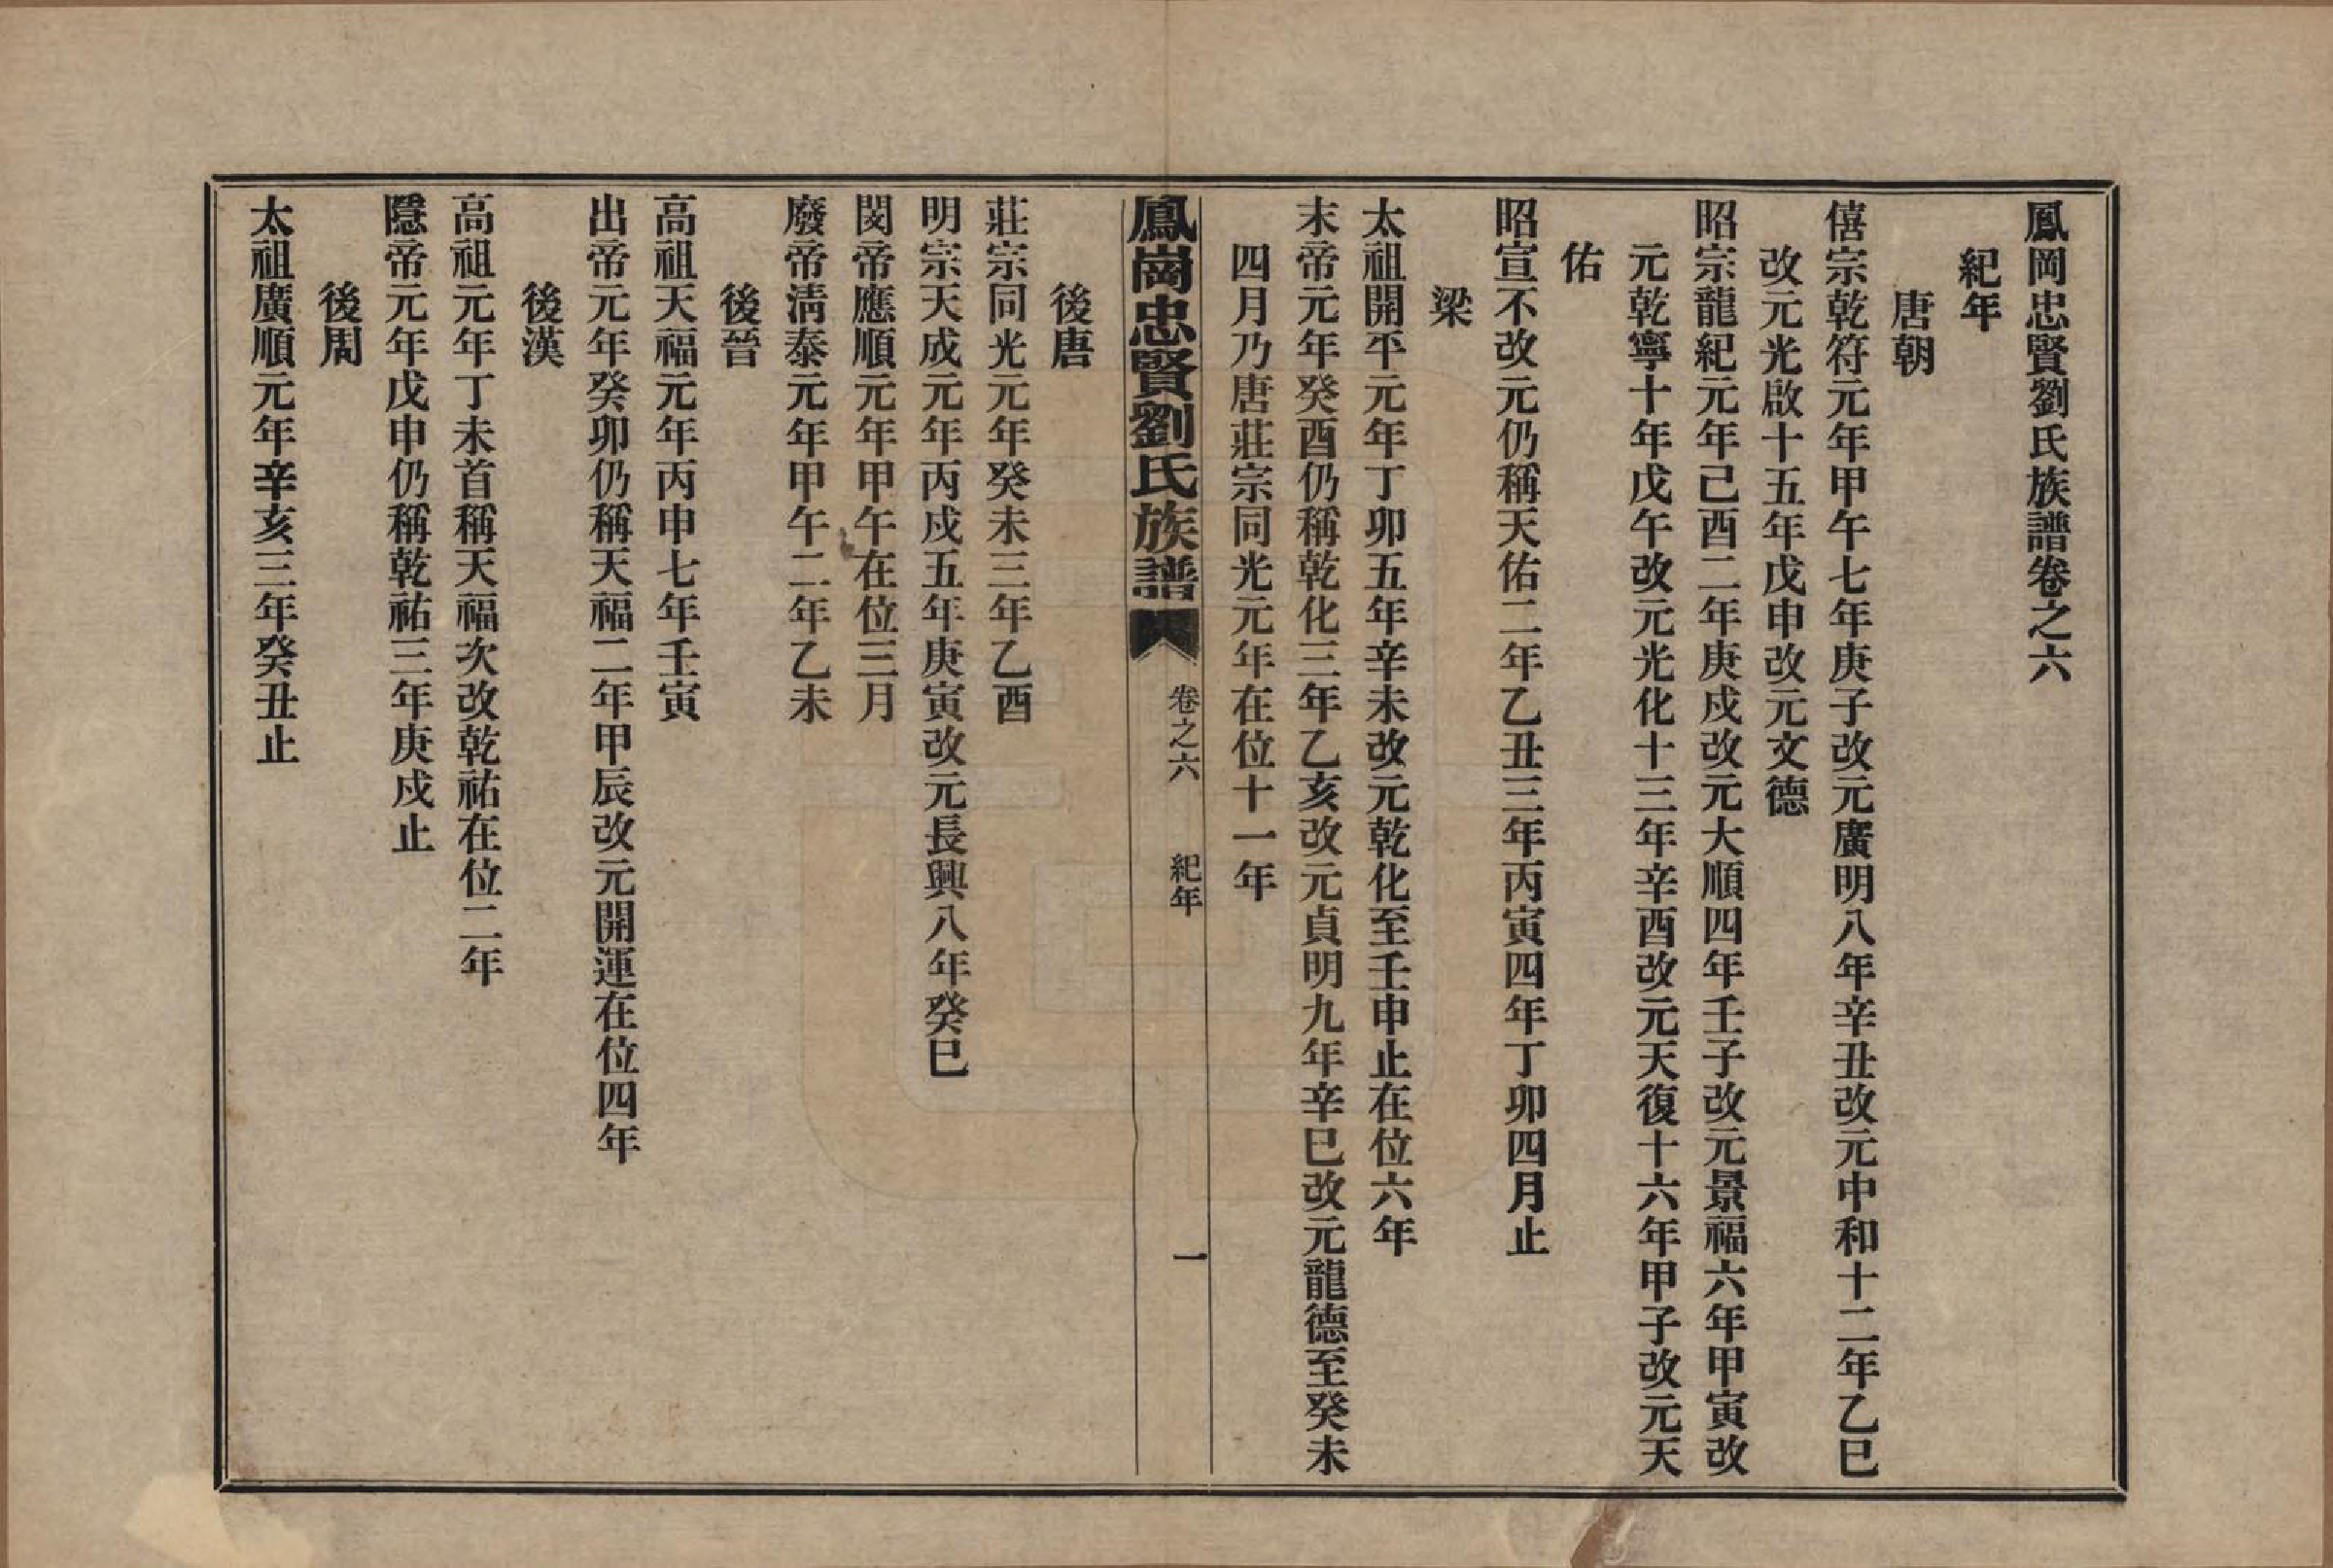 鳳岡忠賢劉氏族譜卷之六
紀年
唐朝
僖宗乾符元年甲午七年庚子改元廣明八年辛丑改元中和十二年乙巳
改元光啟十五年戊申改元文德
昭宗龍紀元年己酉二年庚戌改元大順四年壬子改元景福六年甲寅改
元乾寧十年戊午改元光化十三年辛酉改元天復十六年甲子改元天
佑
昭宣不改元仍稱天佑二年乙丑三年丙寅四年丁卯四月止
梁
太祖開平元年丁卯五年辛未改元乾化至壬申止在位六年
末帝元年癸酉仍稱乾化三年乙亥改元貞明九年辛巳改元龍德至癸未
四月乃唐莊宗同光元年在位十一年
鳳崗忠賢劉氏族譜 卷之六 紀年 一
後唐
莊宗同光元年癸未三年乙酉
明宗天成元年丙戌五年庚寅改元長興八年癸巳
閔帝應順元年甲午在位三月
廢帝清泰元年甲午二年乙未
後晉
高祖天福元年丙申七年壬寅
出帝元年癸卯仍稱天福二年甲辰改元開運在位四年
後漢
高祖元年丁未首稱天福次改乾祐在位二年
隱帝元年戊申仍稱乾祐三年庚戌止
後周
太祖廣順元年辛亥三年癸丑止